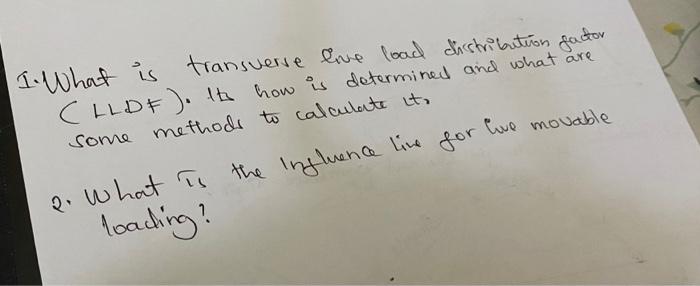 1. What is transverse live load distribution factor
(LLDF). Its how is determined and what are
some methods to calculate it.
2. What is the Influence line for live movable
loading?